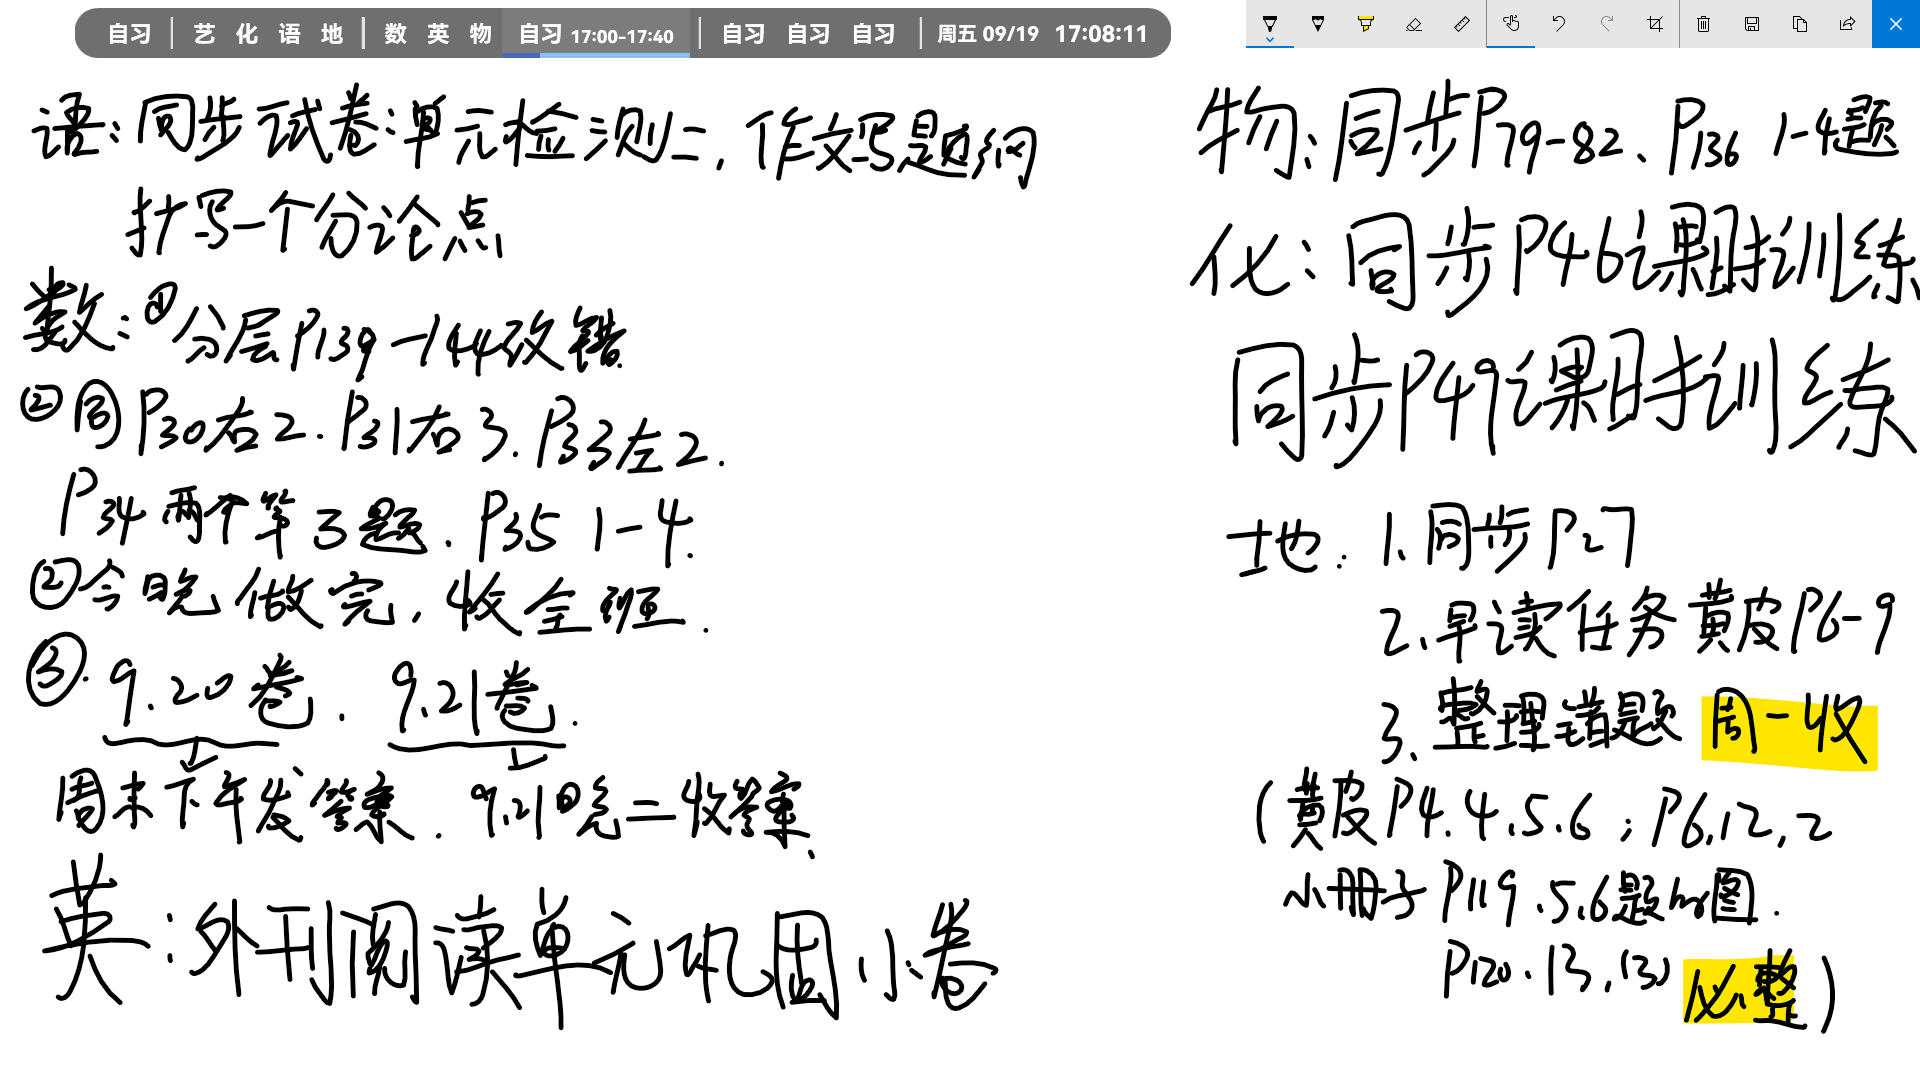 自习 | 艺 化 语 地 | 数 英 物 自习 17:00-17:40 | 自习 自习 自习 | 周五 09/19 17:08:11
语:同步试卷:单元检测二,作文写题纲
抄写一个分论点
数:①分层P139-144改错.
②同P30右2.P31右3.P33左2.
P34两个第3题.P35 1-4.
②今晚做完,收全班.
③.9.20卷.9.21卷.
周末下午发答案.9.21日晚二收答案、
英:外刊阅读单元巩固小卷
物:同步P79-82、P136 1-4题
化:同步P46课时训练
同步P49课时训练
地:1、同步P27
2、早读任务黄皮P6-9
3、整理错题 周一收
(黄皮P4.4.5.6;P6.12,2
小册子P119.5.6题的图.
P120.13,(3)必整)